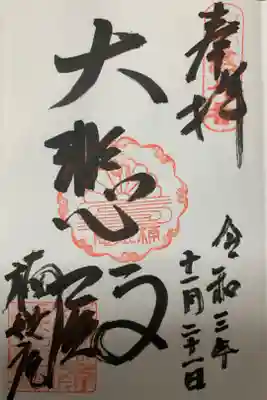 奉拝
令和三年
十一月二十一日
大悲殿
楠妣庵